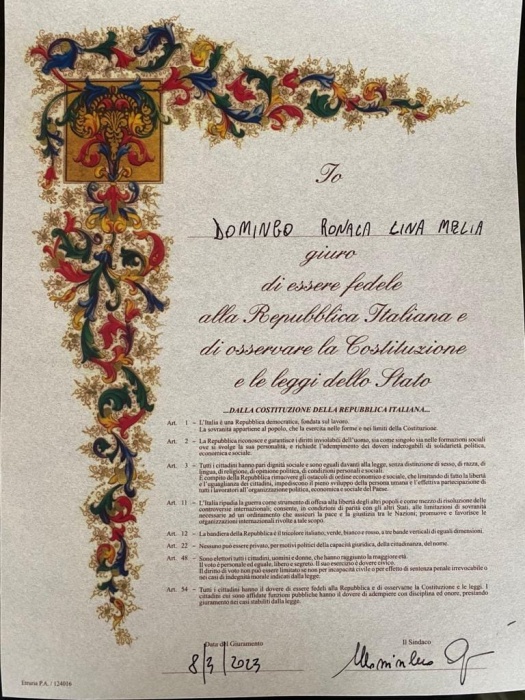 Io
DOMINGO RONALA LINA MELIA
giuro
di essere fedele
alla Repubblica Italiana e
di osservare la Costituzione
e le leggi dello Stato
...DALLA COSTITUZIONE DELLA REPUBBLICA ITALIANA...
Art. 1 - L'Italia è una Repubblica democratica, fondata sul lavoro.
La sovranità appartiene al popolo, che la esercita nelle forme e nei limiti della Costituzione.
Art. 2 - La Repubblica riconosce e garantisce i diritti inviolabili dell'uomo, sia come singolo sia nelle formazioni sociali
ove si svolge la sua personalità, e richiede l'adempimento dei doveri inderogabili di solidarietà politica,
economica e sociale.
Art. 3 - Tutti i cittadini hanno pari dignità sociale e sono eguali davanti alla legge, senza distinzione di sesso, di razza, di
lingua, di religione, di opinione politica, di condizioni personali e sociali.
È compito della Repubblica rimuovere gli ostacoli di ordine economico e sociale, che limitando di fatto la libertà
e l'uguaglianza dei cittadini, impediscono il pieno sviluppo della persona umana e l'effettiva partecipazione di
tutti i lavoratori all'organizzazione politica, economica e sociale del Paese.
Art. 11 - L'Italia ripudia la guerra come strumento di offesa alla libertà degli altri popoli e come mezzo di risoluzione delle
controversie internazionali; consente, in condizioni di parità con gli altri Stati, alle limitazioni di sovranità
necessarie ad un ordinamento che assicuri la pace e la giustizia tra le Nazioni; promuove e favorisce le
organizzazioni internazionali rivolte a tale scopo.
Art. 12 - La bandiera della Repubblica è il tricolore italiano; verde, bianco e rosso, a tre bande verticali di eguali dimensioni.
Art. 22 - Nessuno può essere privato, per motivi politici della capacità giuridica, della cittadinanza, del nome.
Art. 48 - Sono elettori tutti i cittadini, uomini e donne, che hanno raggiunto la maggiore età.
Il voto è personale ed eguale, libero e segreto. Il suo esercizio è dovere civico.
Il diritto di voto non può essere limitato se non per incapacità civile o per effetto di sentenza penale irrevocabile o
nei casi di indegnità morale indicati dalla legge.
Art. 54 - Tutti i cittadini hanno il dovere di essere fedeli alla Repubblica e di osservarne la Costituzione e le leggi. I
cittadini cui sono affidate funzioni pubbliche hanno il dovere di adempierle con disciplina ed onore, prestando
giuramento nei casi stabiliti dalla legge.
Data del Giuramento
Il Sindaco
8/3/2023
P.A. / 124016